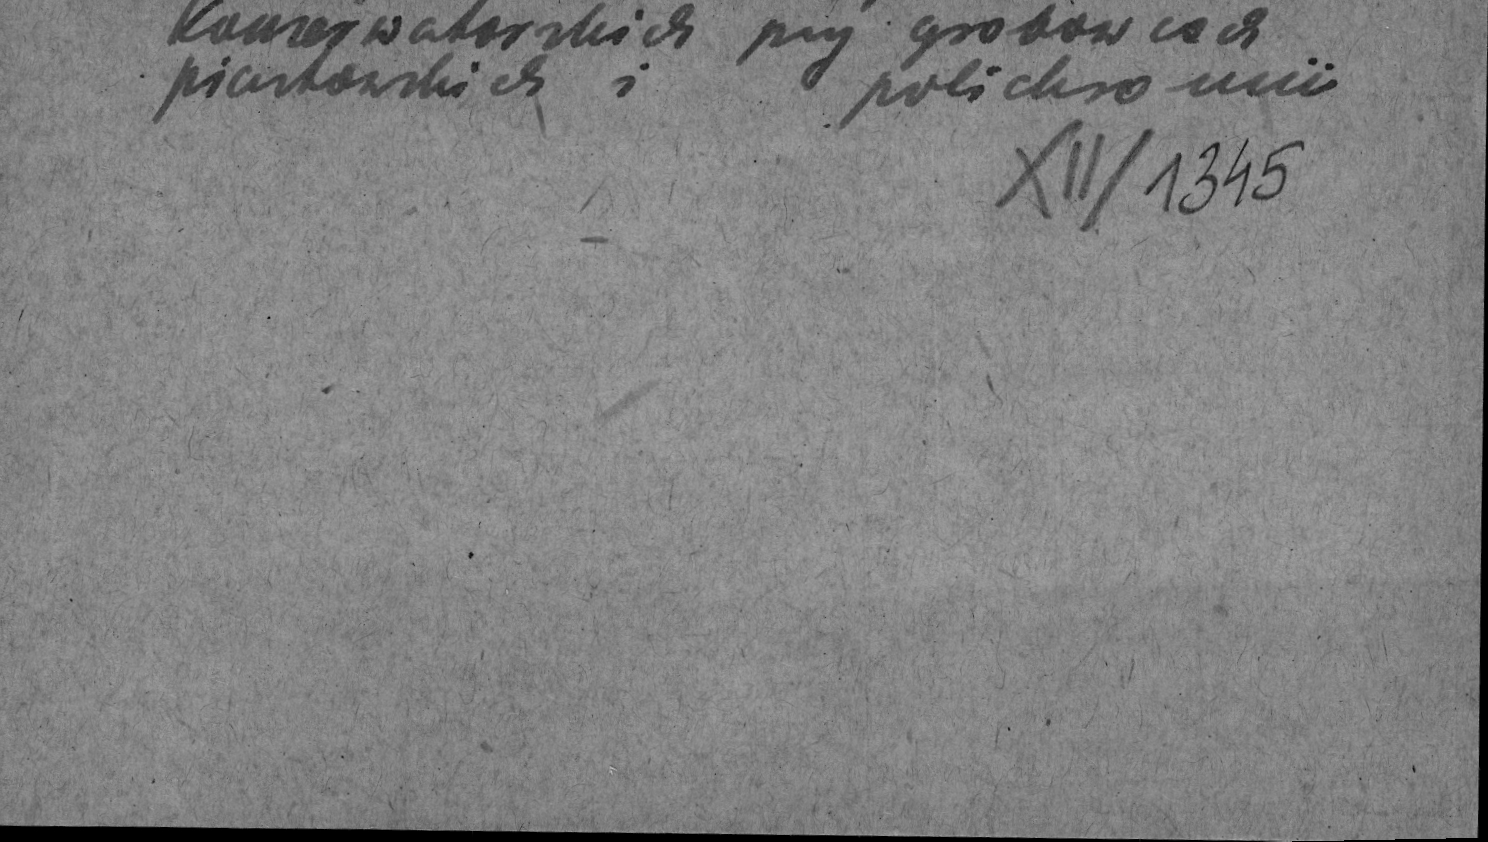 Konserwatorskich przy grobowcach
piastowskich i polichromii
XII/1345